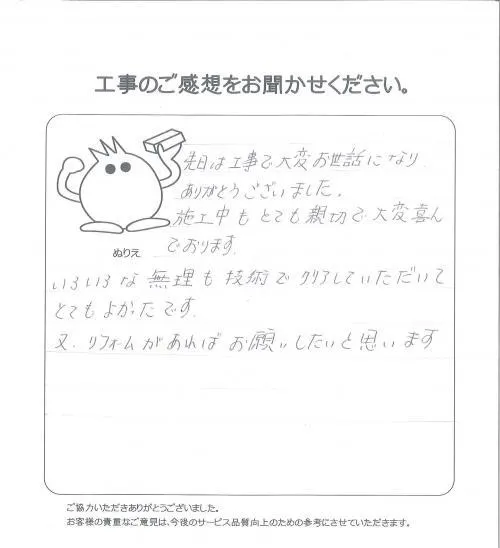 工事のご感想をお聞かせください。
先日は工事で大変お世話になり
ありがとうございました。
施工中もとても親切で大変喜ん
でおります。
ぬりえ
いろいろな無理も技術でクリアしていただいて
とてもよかったです。
又、リフォームがあればお願いしたいと思います
ご協力いただきありがとうございました。
お客様の貴重なご意見は、今後のサービス品質向上のための参考にさせていただきます。